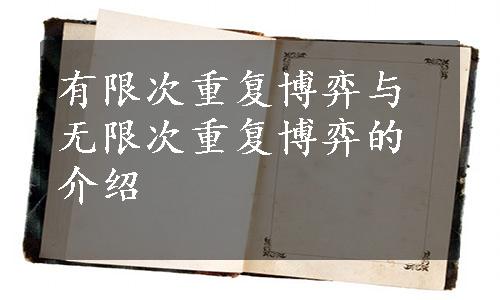 有限次重复博弈与
无限次重复博弈的
介绍